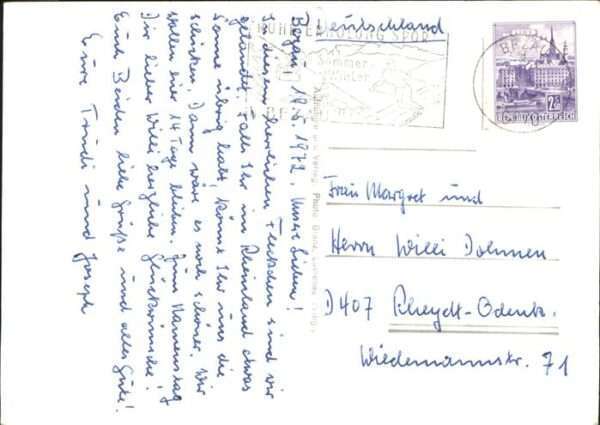 Bezau, 18.5.1972. Unsere Lieben!
In diesem herrlichen Fleckchen sind wir
gelandet. Falls Ihr im Rheinland etwas
Sonne übrig habt, könnt Ihr uns die
schicken. Dann wäre es noch schöner. Wir
wollen hier 14 Tage bleiben. Zum Namenstag
Dir lieber Willi herzliche Glückwünsche!
Euch Beiden liebe Grüße und alles Gute!
Eure Trudi und Joseph
Deutschland
RUHE ERHOLUNG SPORT
Sommer
Winter
BEZAU
2S
REPUBLIK ÖSTERREICH
Frau Margret und
Herrn Willi Dohmen
D 407 Rheydt-Odenk.
Wiedemannstr. 71